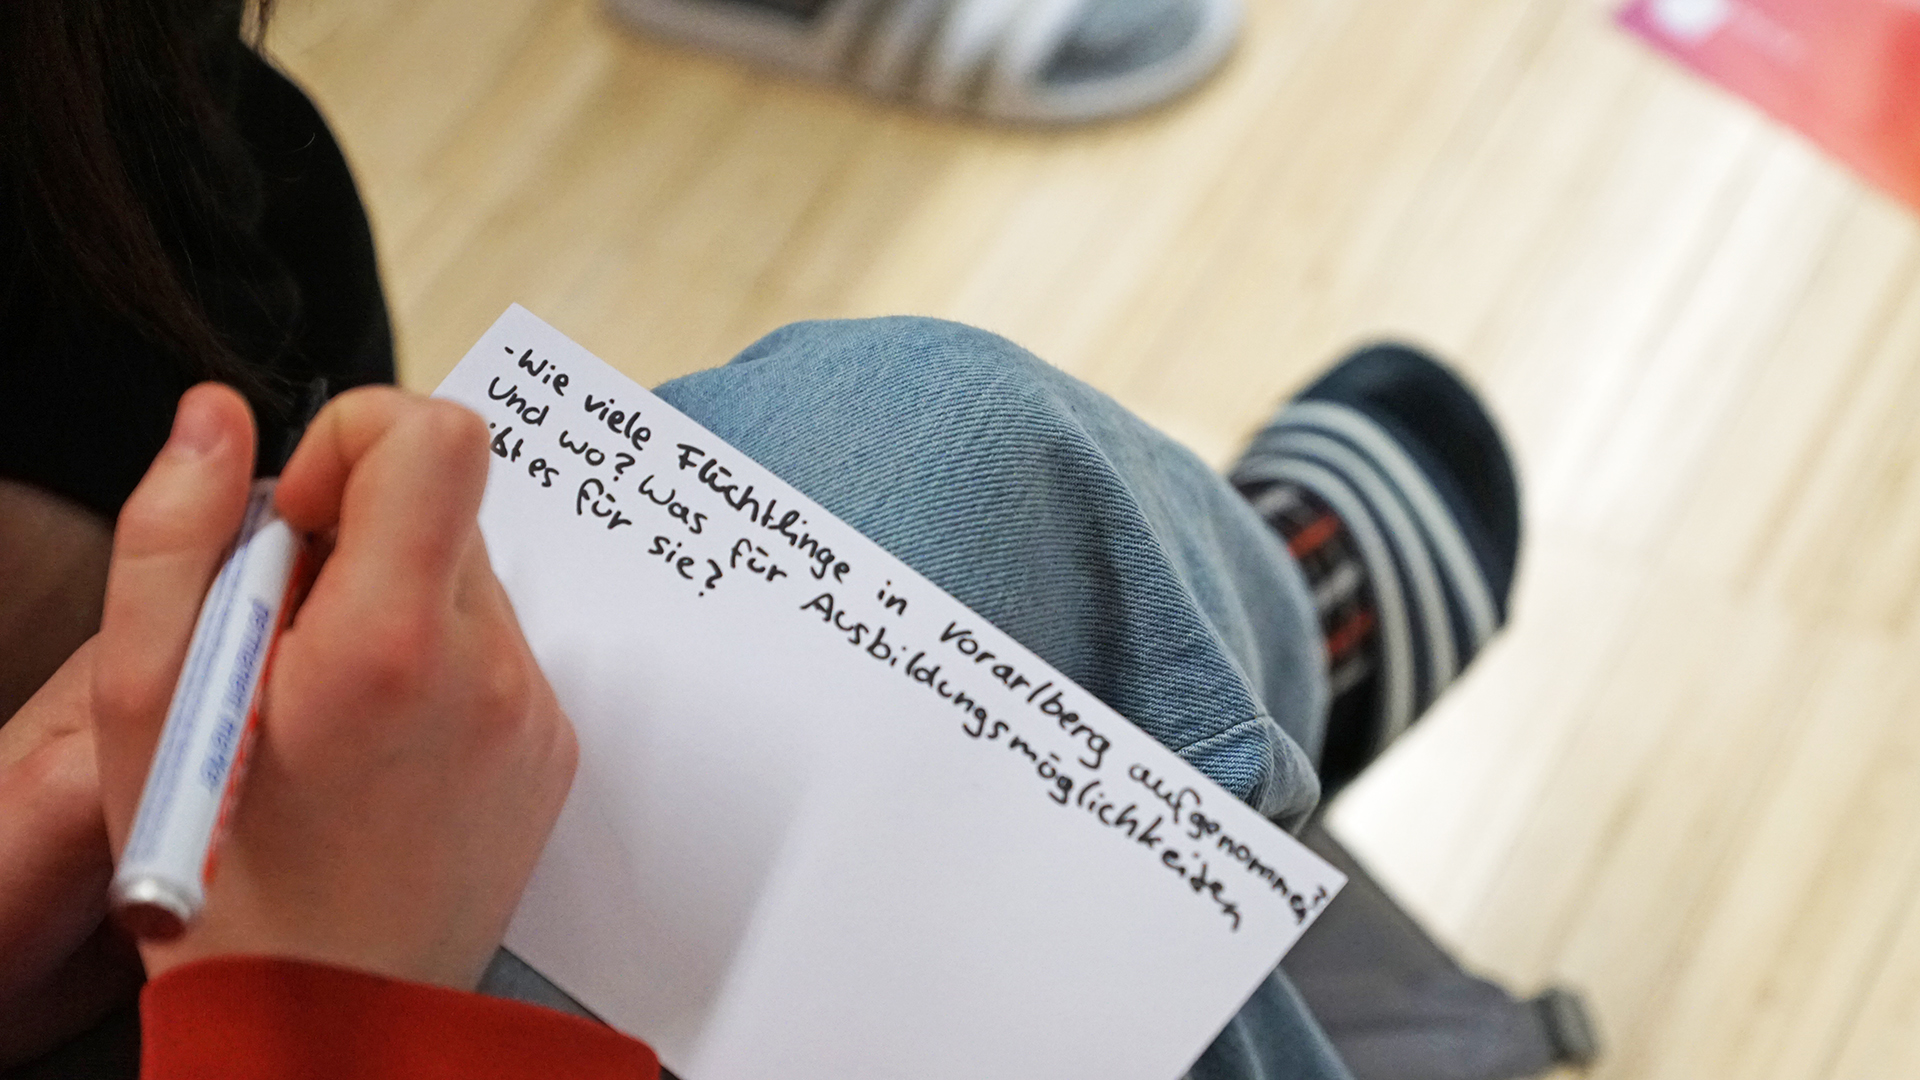 -Wie viele Flüchtlinge in Vorarlberg aufgenommen?
Und wo? Was für Ausbildungsmöglichkeiten
ibt es für sie?
permanent marker